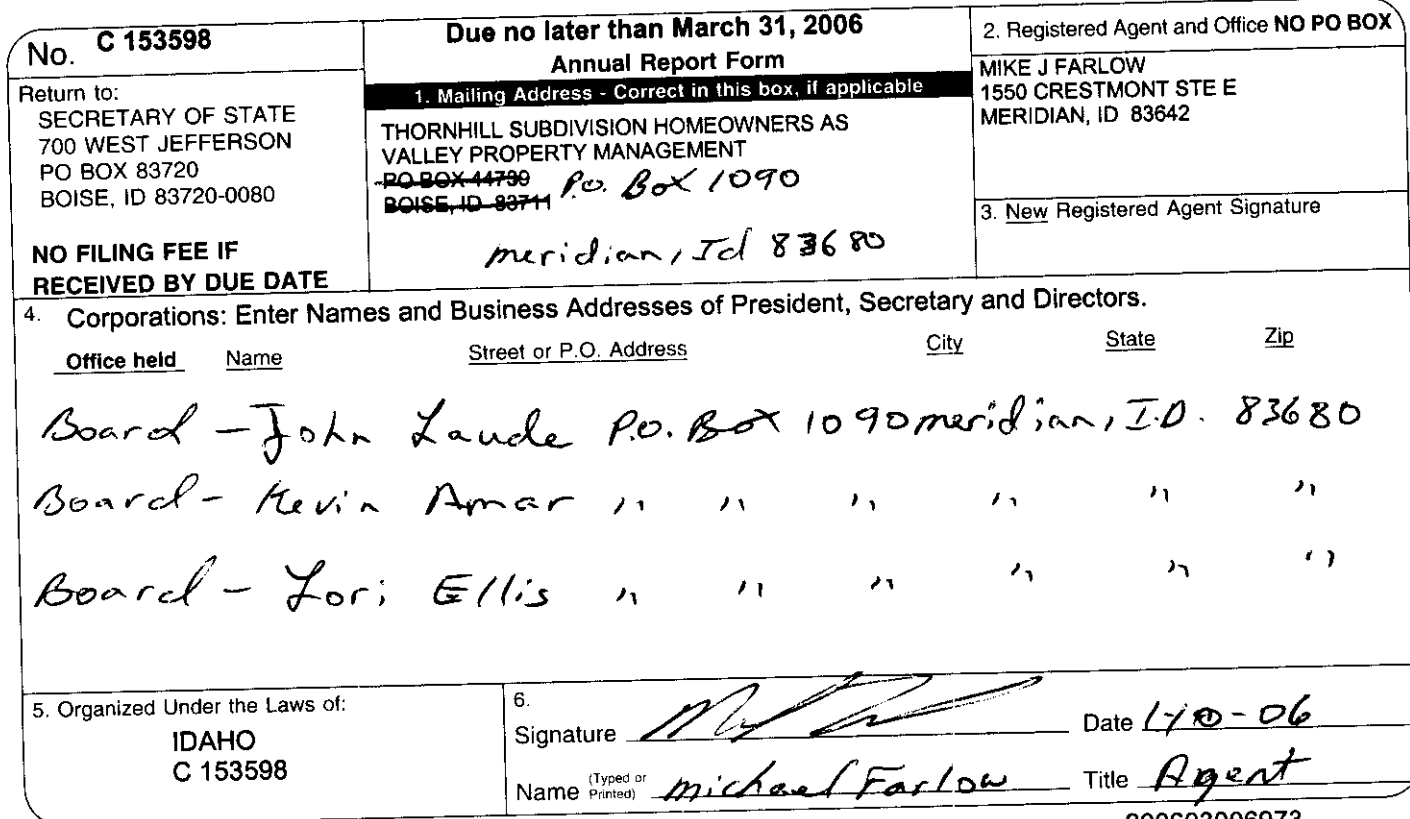 No. C 153598
Return to:
SECRETARY OF STATE
700 WEST JEFFERSON
PO BOX 83720
BOISE, ID 83720-0080
NO FILING FEE IF
RECEIVED BY DUE DATE
Due no later than March 31, 2006
Annual Report Form
1. Mailing Address - Correct in this box, if applicable
THORNHILL SUBDIVISION HOMEOWNERS AS
VALLEY PROPERTY MANAGEMENT
PO BOX 44739 P.O. Box 1090
BOISE, ID 83711
meridian, Id 83680
2. Registered Agent and Office NO PO BOX
MIKE J FARLOW
1550 CRESTMONT STE E
MERIDIAN, ID 83642
3. New Registered Agent Signature
4. Corporations: Enter Names and Business Addresses of President, Secretary and Directors.
Office held Name Street or P.O. Address City State Zip
Board - John Laude P.O. Box 1090 meridian, I.D. 83680
Board - Kevin Amar " " " " " "
Board - Lori Ellis " " " " " "
5. Organized Under the Laws of:
IDAHO
C 153598
6.
Signature Date 1-10-06
Name (Typed or Printed) michael Farlow Title Agent